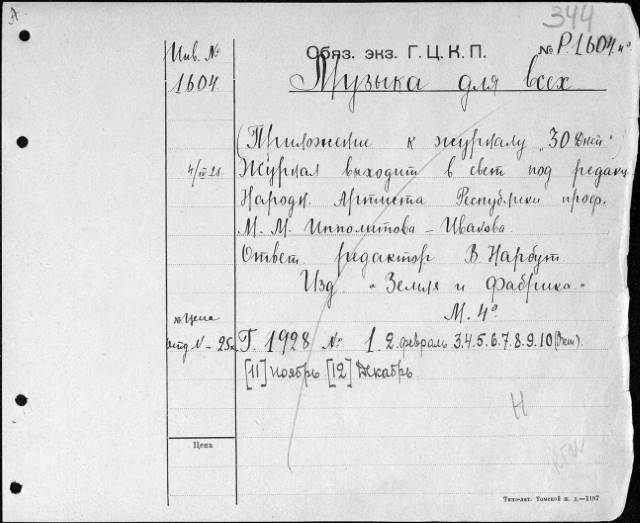 А
344
Инв. №
Обяз. экз. Г. Ц. К. П.
№ Р.1604
1604
Музыка для всех
(Приложение к журналу „30 Дней“
4/III 28
Журнал выходит в свет под редакц.
Народн. Артиста Республики проф.
М. М. Ипполитова-Иванова.
Ответ. редактор В. Нарбут.
Изд. „Земля и Фабрика“
М. 4°
№ Цена
отд № - 25к.
Г. 1928 № 1. 2. февраль 3.4.5.6.7.8.9.10
[11] ноябрь [12] Декабрь
Н
Цена
Типо-лит. Томской ж. д.—1187